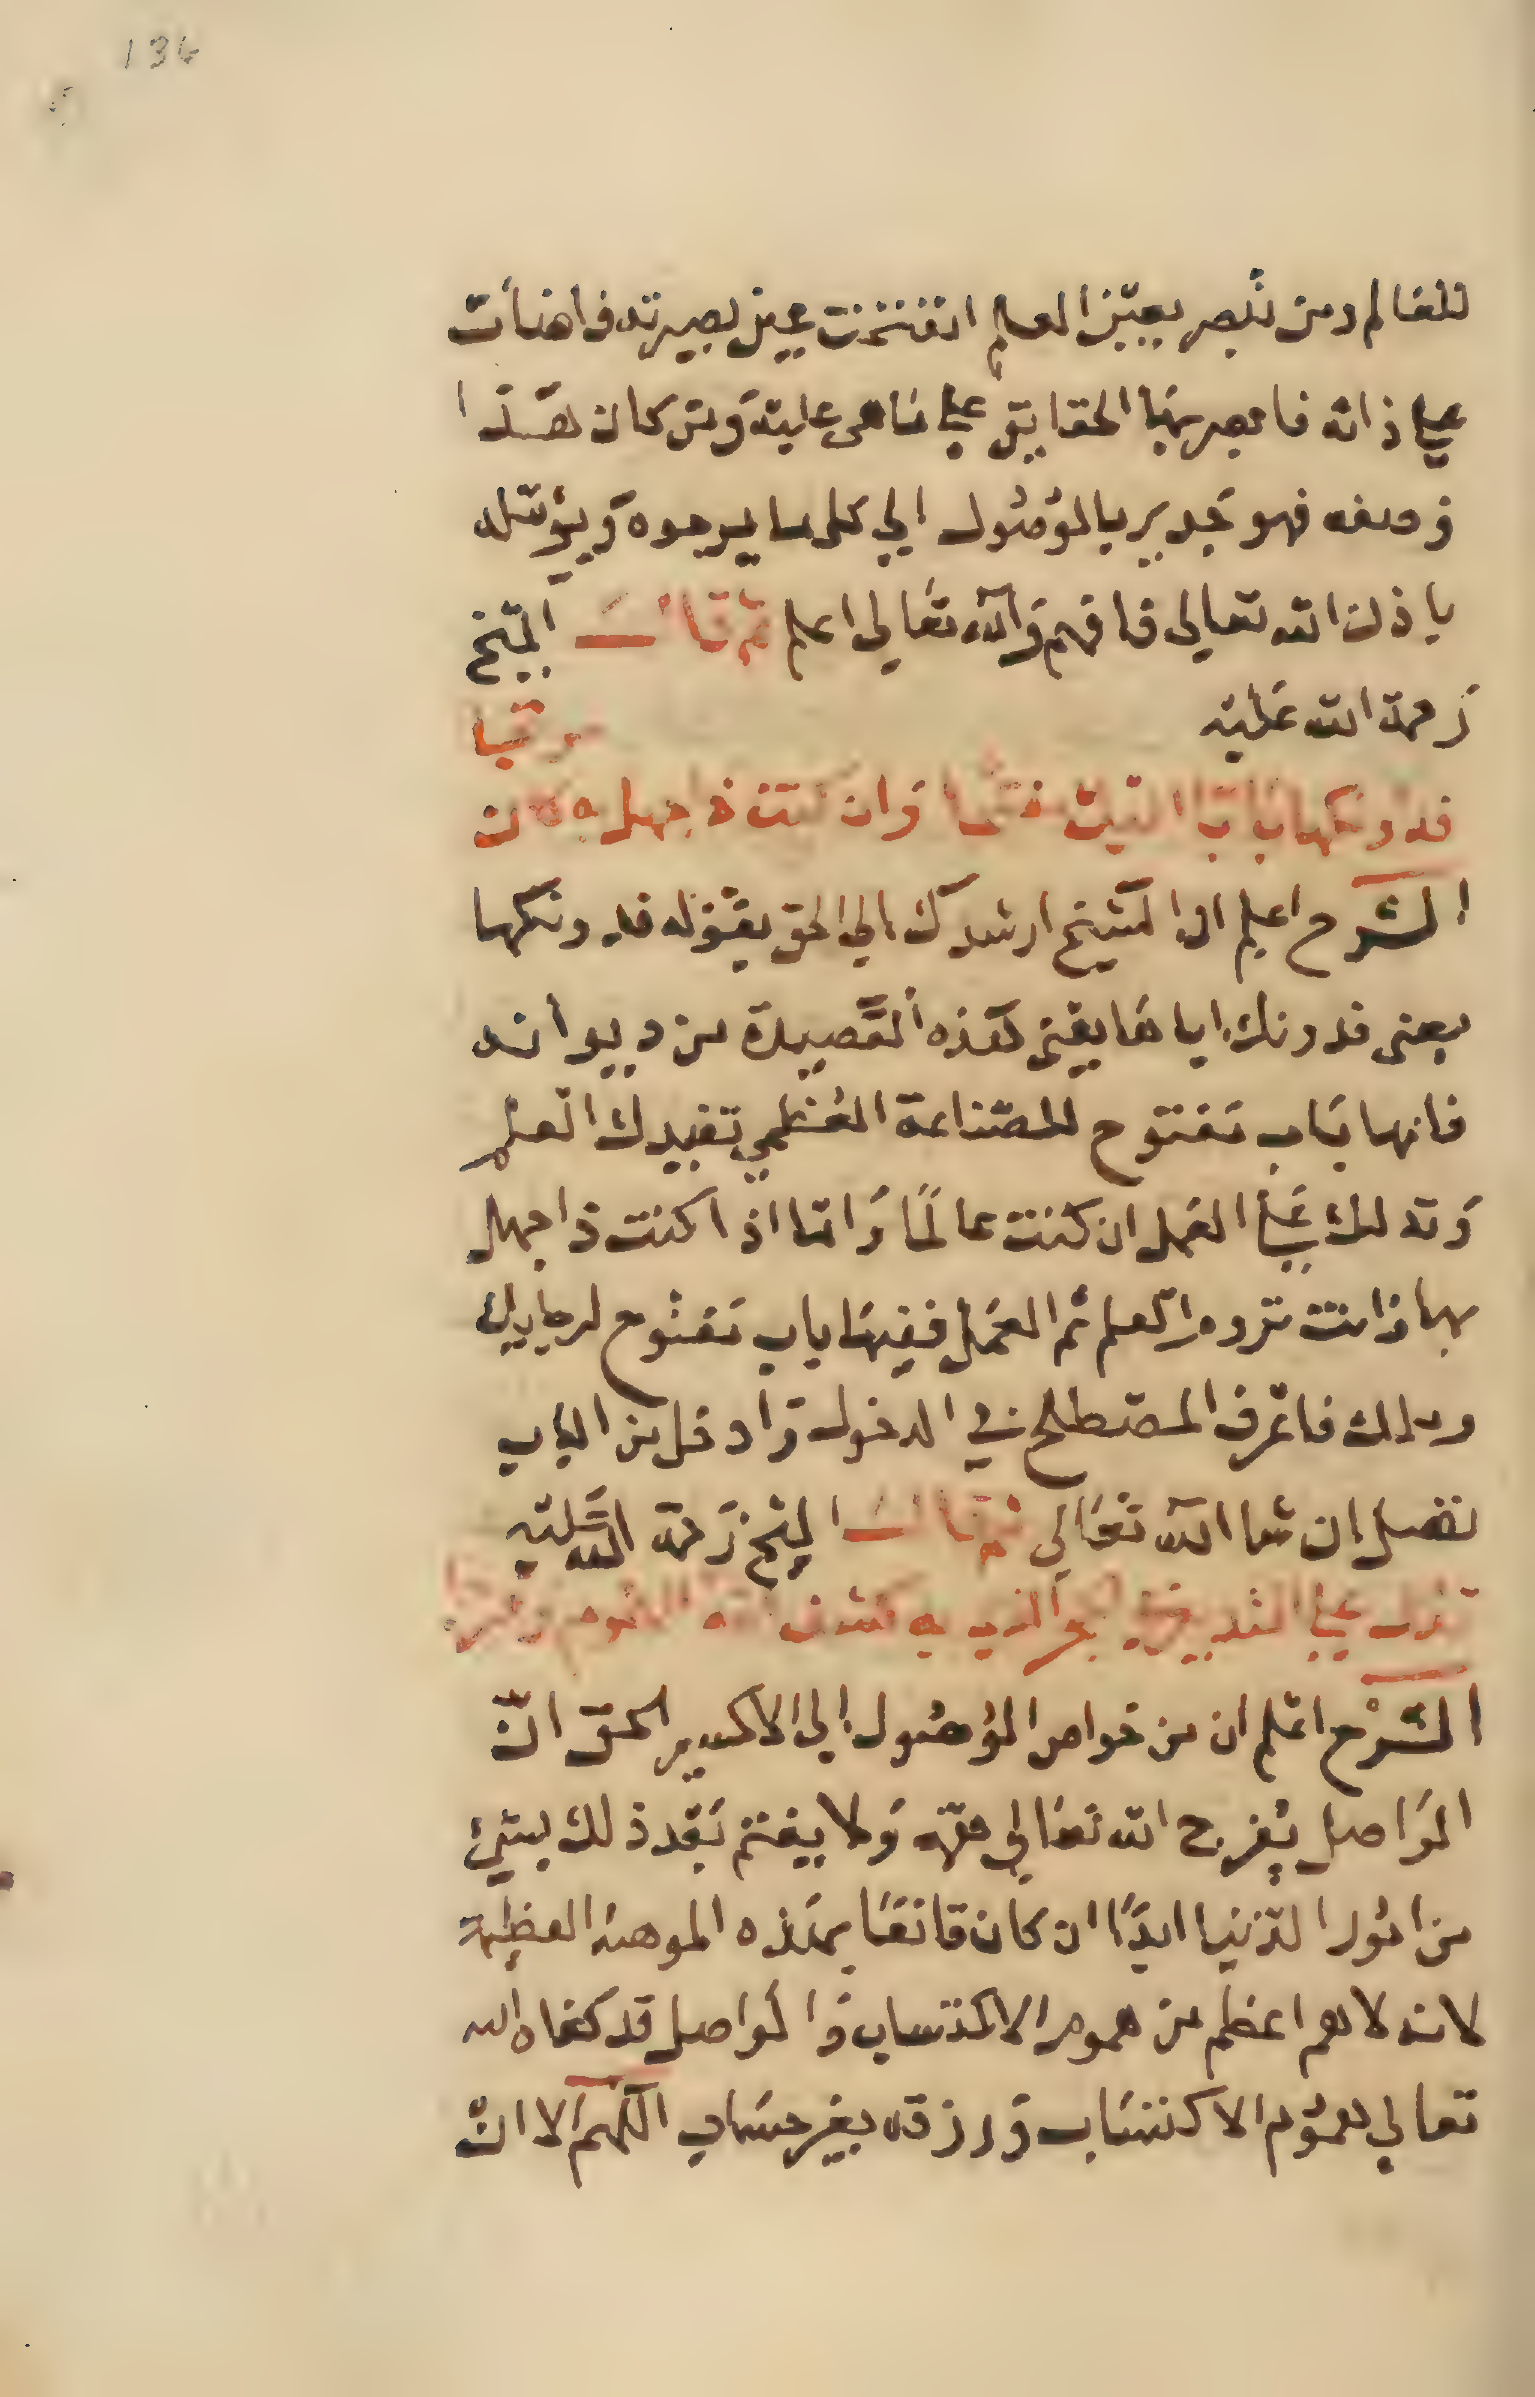 134
للعالم ومن تبصر بعين العلم انفتحت عين بصيرته فاضأت
علي ذاته فابصر بها الحقايق علي ما هي عليه ومن كان هذا
وصفه فهو جدير بالوصول الي كل ما يرجوه ويؤمله
باذن الله تعالي فافهم والله تعالي اعلم ثم قال الشيخ
رحمة الله عليه
فدونكها بابا وان كنت ذا جهل
الشرح اعلم ان الشيخ ارشدك الي الحق بقوله فدونكها
يعني فدونك اياها يعني هذه القصيدة من ديوانه
فانها باب مفتوح للصناعة العظمي تفيدك العلم
وتدلك علي العمل ان كنت عالما واما اذا كنت ذا جهل
بها وانت تروم العلم ثم العمل ففيها باب مفتوح
فاعرف المصطلح في الدخول وادخل من الباب
تصل ان شا الله تعالي ثم قال الشيخ رحمة الله عليه
تدل علي التدبير الذي به كشف الله الهموم
الشرح اعلم ان من خواص الوصول الي الاكسير الحق ان
الواصل يفرج الله تعالي همه ولا يغتم بعد ذلك بشئ
من امور الدنيا ابدا ان كان قانعا بهذه الموهبة العظيمة
لانه لا هم اعظم من هموم الاكتساب والواصل قد كفاه الله
تعالي هموم الاكتساب ورزقه بغير حساب اللهم الا ان